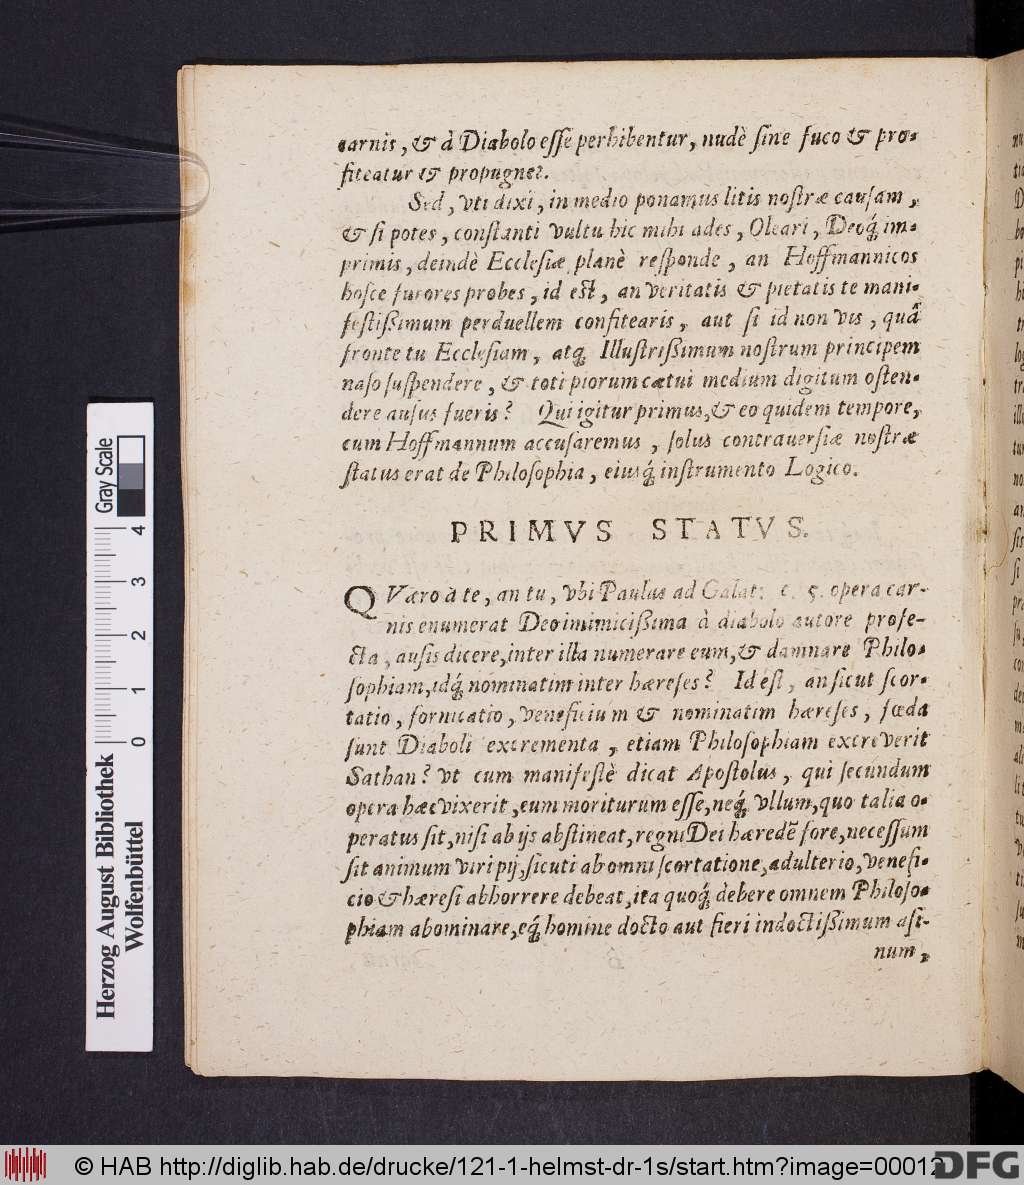 carnis, & à Diabolo esse perhibentur, nudè sine fuco & pro-
fiteatur & propugnet.
Sed, vti dixi, in medio ponamus litis nostræ causam,
& si potes, constanti vultu hic mihi ades, Oleari, Deoq́; im-
primis, deindè Ecclesiæ planè responde, an Hoffmannicos
hosce furores probes, id est, an veritatis & pietatis te mani-
festißimum perduellem confitearis, aut si id non vis, quâ
fronte tu Ecclesiam, atq; Illustrißimum nostrum principem
naso suspendere, & toti piorum cætui medium digitum osten-
dere ausus fueris? Qui igitur primus, & eo quidem tempore,
cum Hoffmannum accusaremus, solus contrauersiæ nostræ
status erat de Philosophia, eiusq́; instrumento Logico.
PRIMVS STATVS.
QVæro à te, an tu, vbi Paulus ad Galat: c. 5. opera car-
nis enumerat Deo inimicißima à diabolo autore profe-
cta, ausis dicere, inter illa numerare eum, & damnare Philo-
sophiam, idq́; nominatim inter hæreses? Id est, an sicut scor-
tatio, fornicatio, veneficium & nominatim hæreses, fœda
sunt Diaboli excrementa, etiam Philosophiam excreverit
Sathan? vt cum manifestè dicat Apostolus, qui secundum
opera hæc vixerit, eum moriturum esse, neq́; vllum, quo talia o-
peratus sit, nisi ab ijs abstineat, regni Dei hæredẽ fore, necessum
sit animum viri pij, sicuti ab omni scortatione, adulterio, venefi-
cio & hæresi abhorrere debeat, ita quoq́; debere omnem Philoso-
phiam abominare, eq́; homine docto aut fieri indoctißimum asi-
num,
Herzog August Bibliothek
Wolfenbüttel
0 1 2 3 4
Gray Scale
© HAB http://diglib.hab.de/drucke/121-1-helmst-dr-1s/start.htm?image=00012
DFG